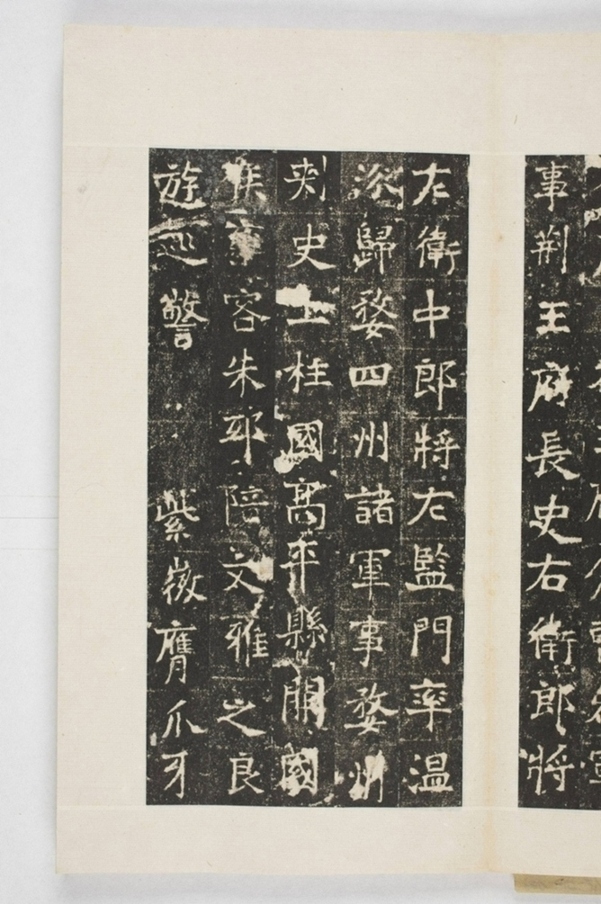 事荆王府長史右衛郎將
左衛中郎將左監門率温
歸婺四州諸軍事婺州
刺史上柱國高平縣開國
客朱邸陪文雅之良
遊巡警 紫微膺爪牙